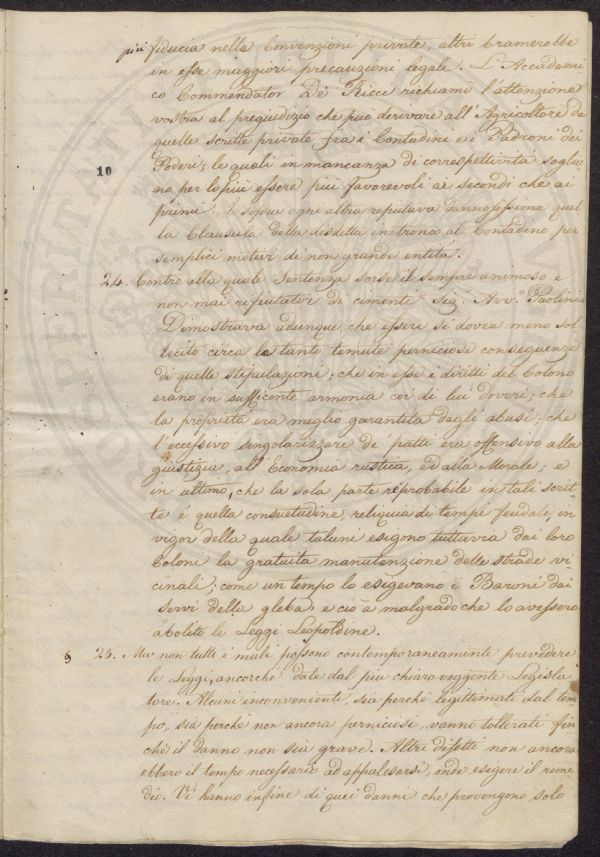 più fiducia nelle Convenzioni private, altri bramerebbe
in esse maggiori precauzioni legali. L'Accademi
co Commendator De' Ricci richiamò l'attenzione
vostra al pregiudizio che può derivare all'Agricoltore da
quelle scritte private fra i Contadini e i Padroni dei
10
Poderi; le quali in mancanza di correspettività soglio
no per lo più essere più favorevoli ai secondi che ai
primi. E sopra ogni altra reputava dannosissima quel
la Clausula della disdetta in tronco al Contadino per
semplici motivi di non grande entità.
24. Contro alla quale Sentenza sorse il sempre animoso e
non mai rifiutator di cimenti Sig. Avv.o Paolini.
Dimostrava adunque che essere si dovea meno sol
lecito circa le tante temute perniciose conseguenze
di quelle stipulazioni; che in esse i diritti del Colono
erano in sufficente armonia coi di lui doveri; che
la proprietà era meglio garantita dagli abusi; che
l'eccessivo singolarizzare de' patti era offensivo alla
giustizia, all'Economia rustica, ed alla Morale; e
in ultimo, che la sola parte reprobabile in tali scrit
te è quella consuetudine, reliquia di tempi feudali, in
vigor della quale taluni esigono tuttavia dai loro
Coloni la gratuita manutenzione delle strade vi
cinali; come un tempo lo esigevano i Baroni dai
servi della gleba, e ciò a malgrado che lo avessero
abolito le Leggi Leopoldine.
25. Ma non tutti i mali possono contemporaneamente prevedere
le Leggi, ancorchè date dal più chiaro veggente Legisla
tore. Alcuni inconvenienti, sia perchè legittimati dal tem
po, sia perchè non ancora perniciosi, vanno tollerati fin
chè il danno non sia grave. Altri difetti non ancora
ebbero il tempo necessario ad appalesarsi, onde esigere il rime
dio. Vi hanno infine di quei danni che provengono solo